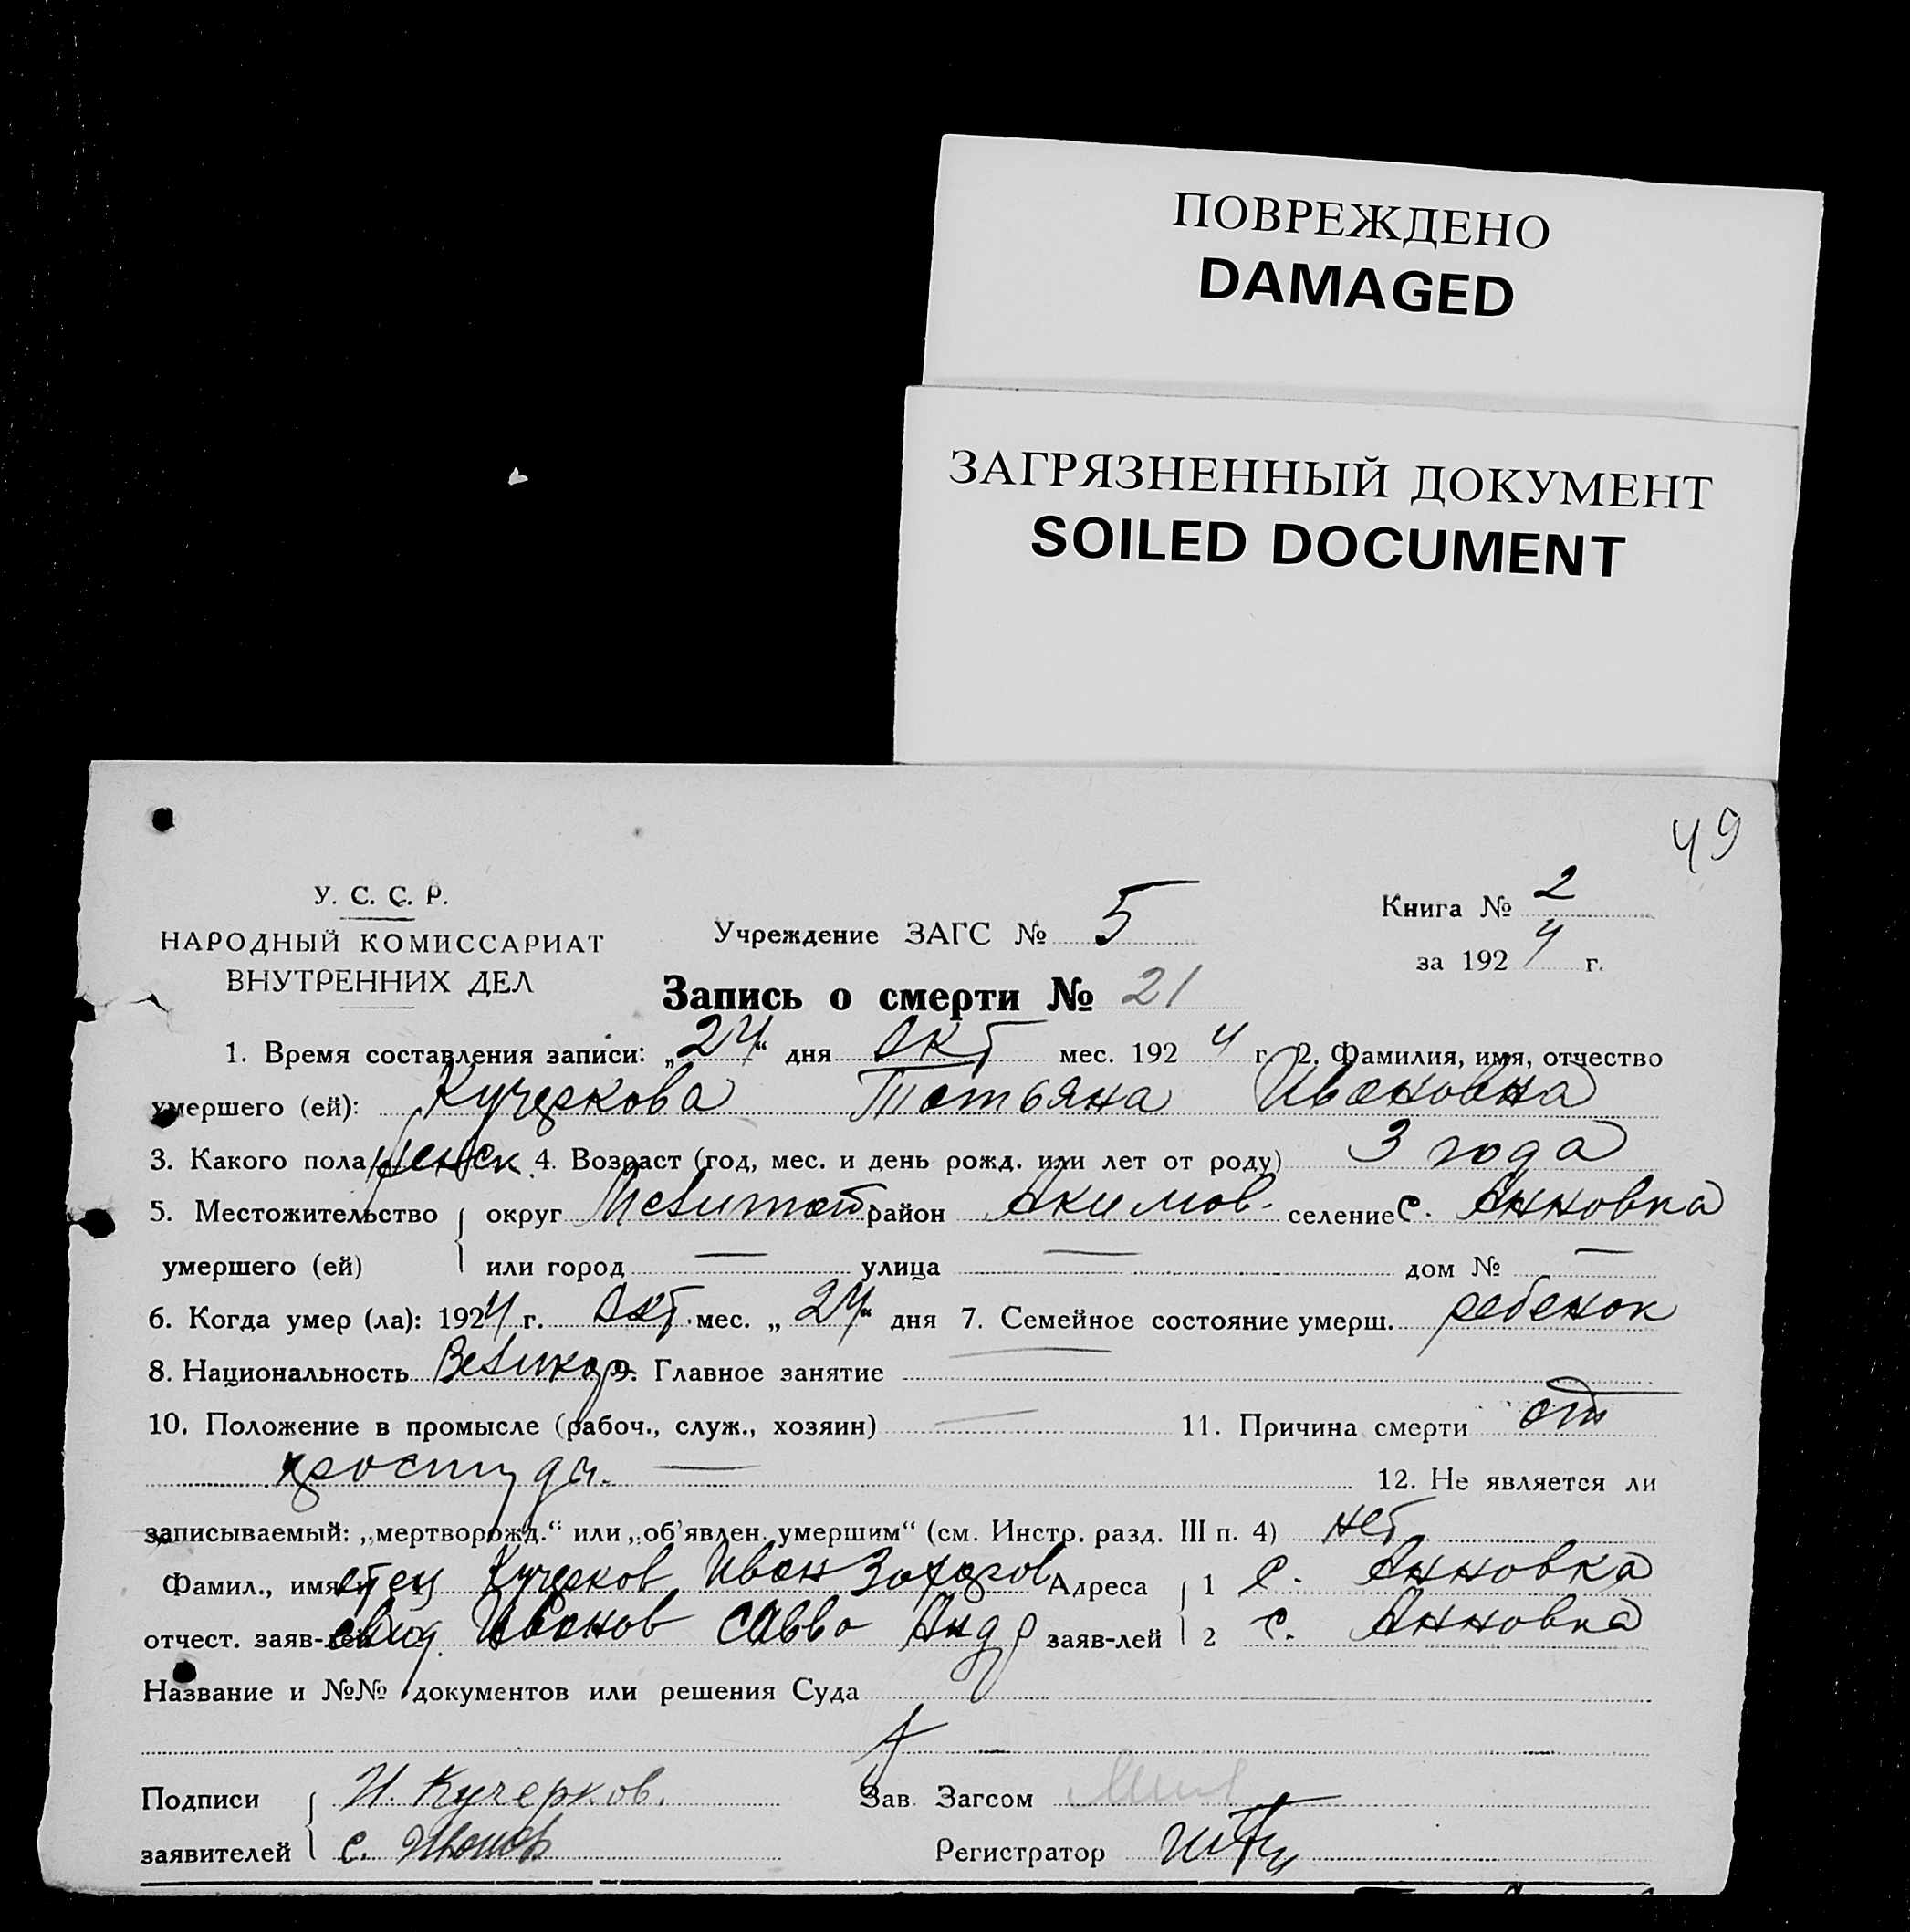 ПОВРЕЖДЕНО
DAMAGED
ЗАГРЯЗНЕННЫЙ ДОКУМЕНТ
SOILED DOCUMENT
49
У. С. С. Р.
НАРОДНЫЙ КОМИССАРИАТ
ВНУТРЕННИХ ДЕЛ
Учреждение ЗАГС № 5
Книга № 2
за 1924 г.
Запись о смерти № 21
1. Время составления записи: „24“ дня Окт мес. 1924 г. 2. Фамилия, имя, отчество
умершего (ей): Кучеркова Татьяна Ивановна
3. Какого пола женск. 4. Возраст (год, мес. и день рожд. или лет от роду) 3 года
5. Местожительство округ Мелитоп. район Акимов. селение с. Анновка
умершего (ей) или город — улица — дом № —
6. Когда умер (ла): 1924 г. Окт. мес. „24“ дня 7. Семейное состояние умерш. ребенок
8. Национальность Великор. 9. Главное занятие —
10. Положение в промысле (рабоч., служ., хозяин) — 11. Причина смерти от
простуды. — 12. Не является ли
записываемый: „мертворожд.“ или „об'явлен. умершим“ (см. Инстр. разд. III п. 4) нет
Фамил., имя и отец Кучерков Иван Захаров Адреса 1 с. Анновка
отчест. заяв-лей свид. Иванов Савва Андр заяв-лей 2 с. Анновка
Название и №№ документов или решения Суда
Подписи И. Кучерков. Зав. Загсом
заявителей С. Иванов Регистратор